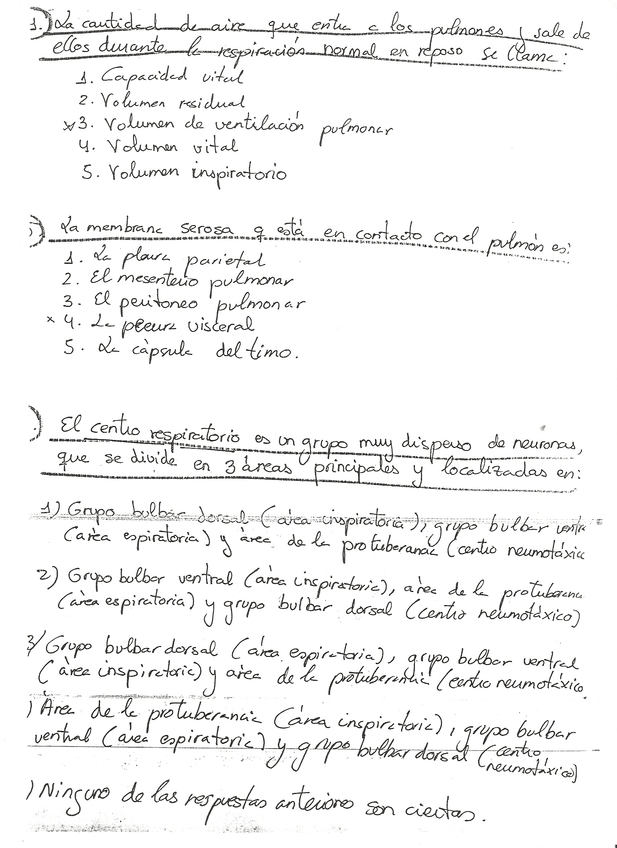 1.) La cantidad de aire que entra a los pulmones y sale de
ellos durante la respiración normal en reposo se llama:
1. Capacidad vital
2. Volumen residual
x3. Volumen de ventilación pulmonar
4. Volumen vital
5. Volumen inspiratorio
) La membrana serosa q está en contacto con el pulmón es:
1. La pleura parietal
2. El mesenterio pulmonar
3. El peritoneo pulmonar
x 4. La pleura visceral
5. La càpsula del timo.
) El centro respiratorio es un grupo muy disperso de neuronas,
que se divide en 3 áreas principales y localizadas en:
1) Grupo bulbar dorsal (área inspiratoria), grupo bulbar ventra
(área espiratoria) y área de la protuberancia (centro neumotáxico
2) Grupo bulbar ventral (área inspiratoria), área de la protuberancia
(área espiratoria) y grupo bulbar dorsal (centro neumotáxico)
3) Grupo bulbar dorsal (área espiratoria), grupo bulbar ventral
(área inspiratoria) y área de la protuberancia (centro neumotáxico.
) Área de la protuberancia (área inspiratoria), grupo bulbar
ventral (área espiratoria) y grupo bulbar dorsal (centro
neumotáxico)
) Ninguno de las respuestas anteriores son ciertas.